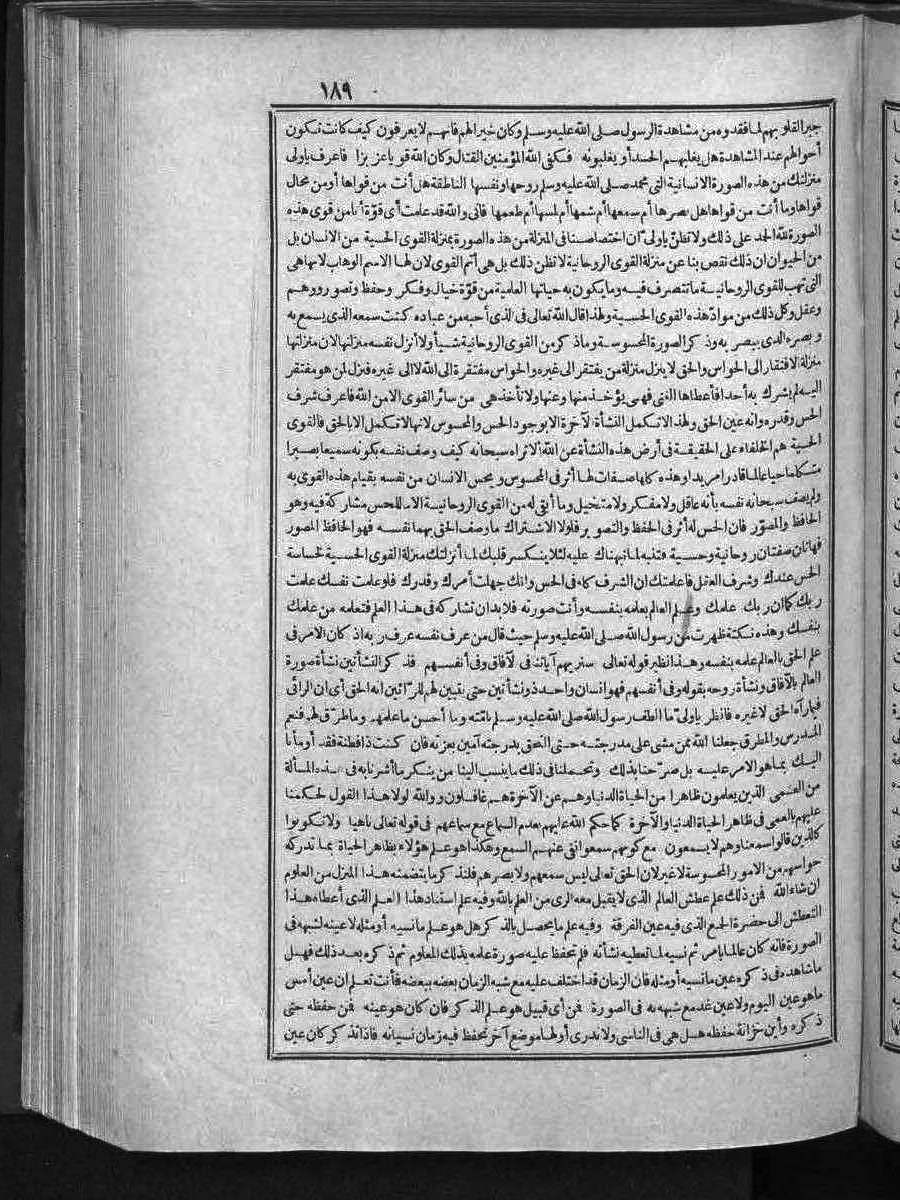 ١٨٩
جبر القلوبهم لما فقدوه من مشاهدة الرسول صلى الله عليه وسلم وكان خيرا لهم فانهم لا يعرفون كيف كانت تكون
أحوالهم عند المشاهدة هل يغلبهم الحسد أو يغلبونه فكفى الله المؤمنين القتال وكان الله قويا عزيزا فاعرف ياولى
منزلتك من هذه الصورة الانسانية التى محمد صلى الله عليه وسلم روحها ونفسها الناطقة هل أنت من قواها أو من محال
قواها وما أنت من قواها هل بصرها أم سمعها أم شمها أم لمسها أم طعمها فانى والله قد علمت أى قوة أنا من قوى هذه
الصورة لله الحمد على ذلك ولا تظن ياولى ان اختصاصنا فى المنزلة من هذه الصورة بمنزلة القوى الحسية من الانسان بل
من الحيوان ان ذلك نقص بنا عن منزلة القوى الروحانية لا تظن ذلك بل هى أتم القوى لان لها الاسم الوهاب لانها هى
التى تهب للقوى الروحانية ما تتصرف فيه وما يكون به حياتها العلمية من قوة خيال وفكر وحفظ وتصور ووهم
وعقل وكل ذلك من مواد هذه القوى الحسية ولهذا قال الله تعالى فى الذى أحبه من عباده كنت سمعه الذى يسمع به
وبصره الذى يبصر به وذكر الصورة المحسوسة وما ذكر من القوى الروحانية شيأ ولا أنزل نفسه منزلتها لان منزلتها
منزلة الافتقار الى الحواس والحق لا ينزل منزلة من يفتقر الى غيره والحواس مفتقرة الى الله لا الى غيره فنزل لمن هو مفتقر
اليه لم يشرك به أحدا فأعطاها الغنى فهى يؤخذ منها وعنها ولا تأخذ هى من سائر القوى الا من الله فاعرف شرف
الحس وقدره وانه عين الحق ولهذا لا تكمل النشأة الآخرة الا بوجود الحس والمحسوس لانها لا تكمل الا بالحق فالقوى
الحسية هم الخلفاء على الحقيقة فى أرض هذه النشأة عن الله ألا تراه سبحانه كيف وصف نفسه بكونه سميعا بصيرا
متكلما حيا عالما قادرا مريدا وهذه كلها صفات لها أثر فى المحسوس ويحس الانسان من نفسه بقيام هذه القوى به
ولم يصف سبحانه نفسه بأنه عاقل ولا مفكر ولا متخيل وما أبقى له من القوى الروحانية الا ما للحس مشاركة فيه وهو
الحافظ والمصور فان الحس له أثر فى الحفظ والتصوير فلولا الاشتراك ما وصف الحق بهما نفسه فهو الحافظ المصور
فهاتان صفتان روحانية وحسية فتنبه لما نبهناك عليه لئلا ينكسر قلبك لما أنزلتك منزلة القوى الحسية لخساسة
الحس عندك وشرف العقل فاعلمتك ان الشرف كله فى الحس وانك جهلت أمرك وقدرك فلو علمت نفسك علمت
ربك كما ان ربك علمك وعلم العالم بعلمه بنفسه وأنت صورته فلا بد ان تشاركه فى هذا العلم فتعلمه من علمك
بنفسك وهذه نكتة ظهرت من رسول الله صلى الله عليه وسلم حيث قال من عرف نفسه عرف ربه اذ كان الامر فى
علم الحق بالعالم علمه بنفسه وهذا نظير قوله تعالى سنريهم آياتنا فى الآفاق وفى أنفسهم فذكر النشأتين نشأة صورة
العالم بالآفاق ونشأة روحه بقوله وفى أنفسهم فهو انسان واحد ذو نشأتين حتى يتبين لهم للرائين انه الحق أى ان الرائى
فيما رآه الحق لا غيره فانظر ياولى ما ألطف رسول الله صلى الله عليه وسلم بامته وما أحسن ما علمهم وما طرق لهم فنعم
المدرس والمطرق جعلنا الله ممن مشى على مدرجته حتى التحق بدرجته آمين بعزته فان كنت ذا فطنة فقد أومأنا
اليك بما هو الامر عليه بل صرحنا بذلك وتحملنا فى ذلك ما ينسب الينا من ينكر ما أشرنا به فى هذه المسألة
من العمى الذين يعلمون ظاهرا من الحياة الدنيا وهم عن الآخرة هم غافلون ووالله لولا هذا القول لحكمنا
عليهم بالعمى فى ظاهر الحياة الدنيا والآخرة كما حكم الله عليهم بعدم السماع مع سماعهم فى قوله تعالى ناهيا ولا تكونوا
كالذين قالوا سمعنا وهم لا يسمعون مع كونهم سمعوا نفى عنهم السمع وهكذا هو علم هؤلاء بظاهر الحياة بما تدركه
حواسهم من الامور المحسوسة لا غير لان الحق تعالى ليس سمعهم ولا بصرهم فلنذكر ما يتضمنه هذا المنزل من العلوم
ان شاء الله فمن ذلك علم عطش العالم الذى لا يقبل معه الرى من العلم بالله وفيه علم استناد هذا العلم الذى أعطاه هذا
التعطش الى حضرة الجمع الذى فيه عين الفرقة وفيه علم ما يحصل بالذكر هل هو علم ما نسيه أو مثله لا عينه لشبهه فى
الصورة فانه كان عالما بامر ثم نسيه لما تعطيه نشأته فلم تحفظ عليه صورة علمه بذلك المعلوم ثم ذكره بعد ذلك فهل
ما شاهده فى ذكره عين ما نسيه أو مثله فان الزمان قد اختلف عليه مع شبه الزمان بعضه ببعضه فأنت تعلم ان عين أمس
ما هو عين اليوم ولا عين غد مع شبهه به فى الصورة فمن أى قبيل هو علم الذكر فان كان هو عينه فمن حفظه حتى
ذكره وأين خزانة حفظه هل هى فى الناسى ولا يدرى أو لها موضع آخر تحفظ فيه زمان نسيانه فاذا تذكر كان عين